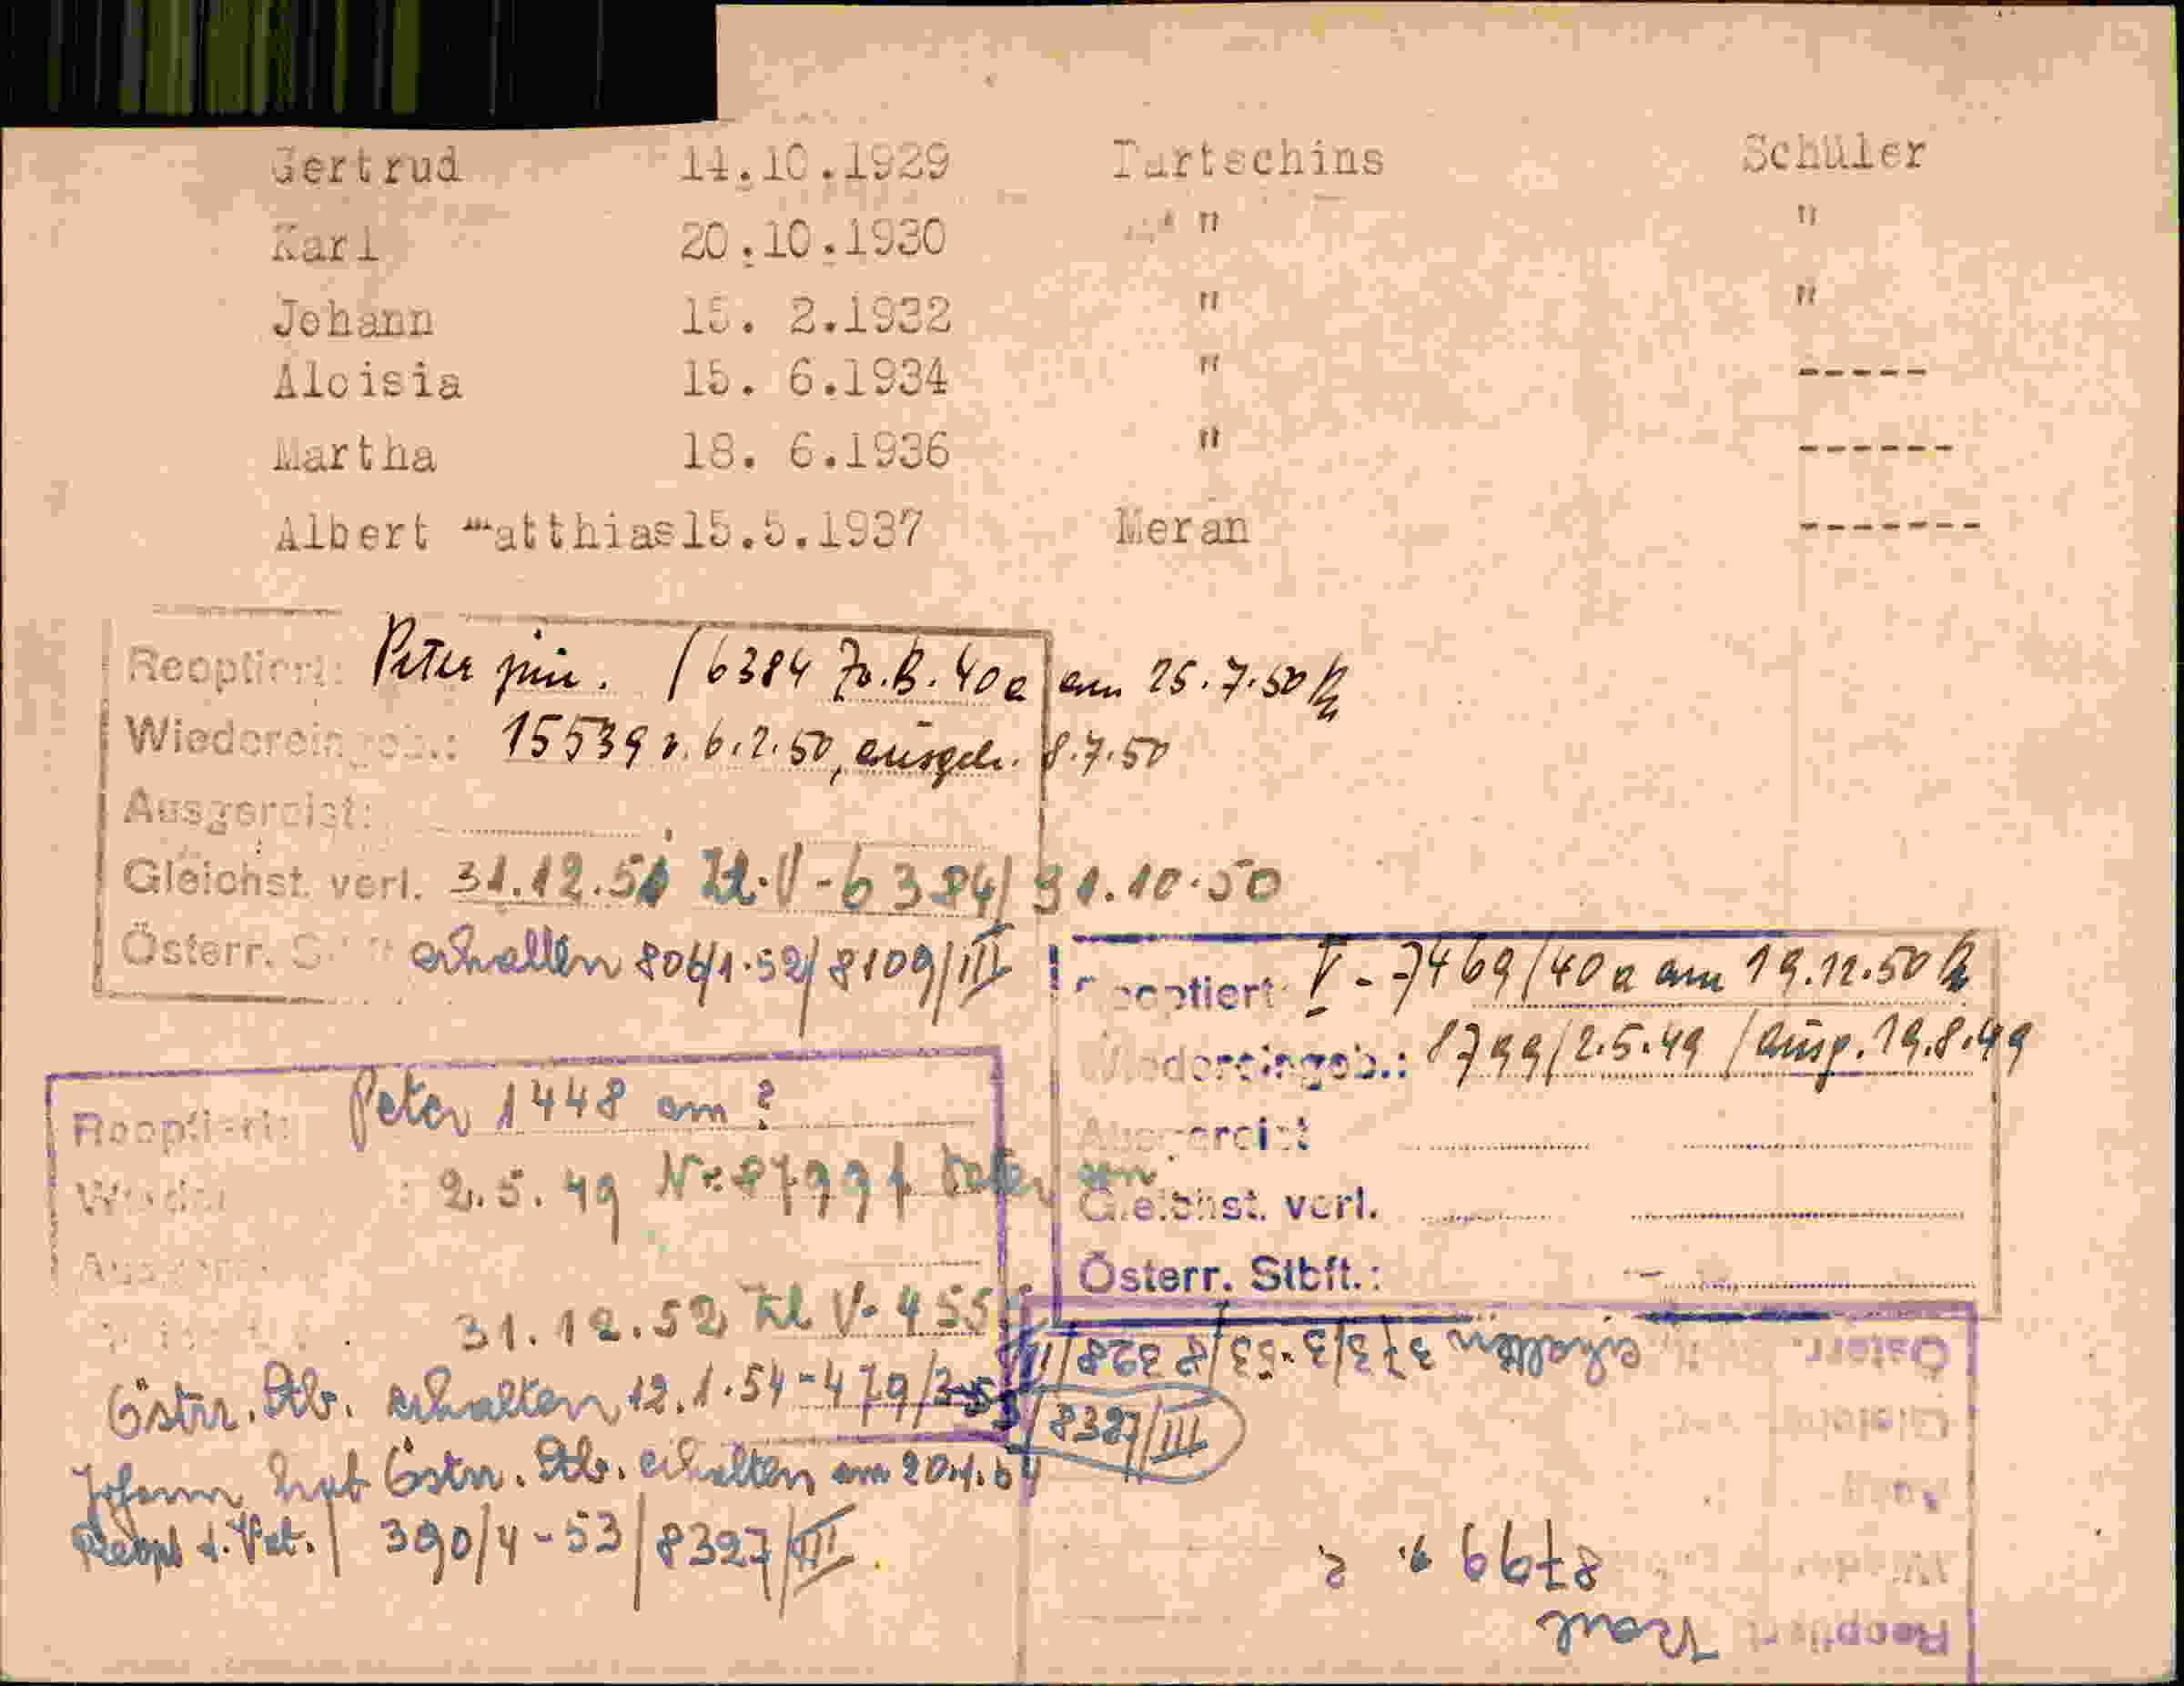 Gertrud 14.10.1929 Partschins Schüler
Karl 20.10.1930 " "
Johann 15. 2.1932 " "
Aloisia 15. 6.1934 " -----
Martha 18. 6.1936 " ------
Albert Matthias 15.5.1937 Meran -------
Reoptiert: Peter jun. 6384 40a am 25.7.50
Wiedereingeb.: 15539 v. 6.2.50, ausgeh. 8.7.50
Ausgereist:
Gleichst. verl. 31.12.51 Zl. V-6384/31.10.50
Österr. erhalten 806/1.52/8109/III
Reoptiert V-7469/40a am 19.12.50
Wiedereingeb.: 1799/2.5.49 /ausg. 19.8.49
Ausgereist
Gleichst. verl.
Österr. Stbft.:
Reoptiert: Peter 1448 am ?
2.5.49
31.12.52 Zl V-455
Östrr. Stb. erhalten 12.1.54-479/
8327/III
Johann hat Östrr. Stb. erhalten am
390/4-53/8327/III.
Reoptiert
8799
Österr. erhalten 373/3-53/8328/III